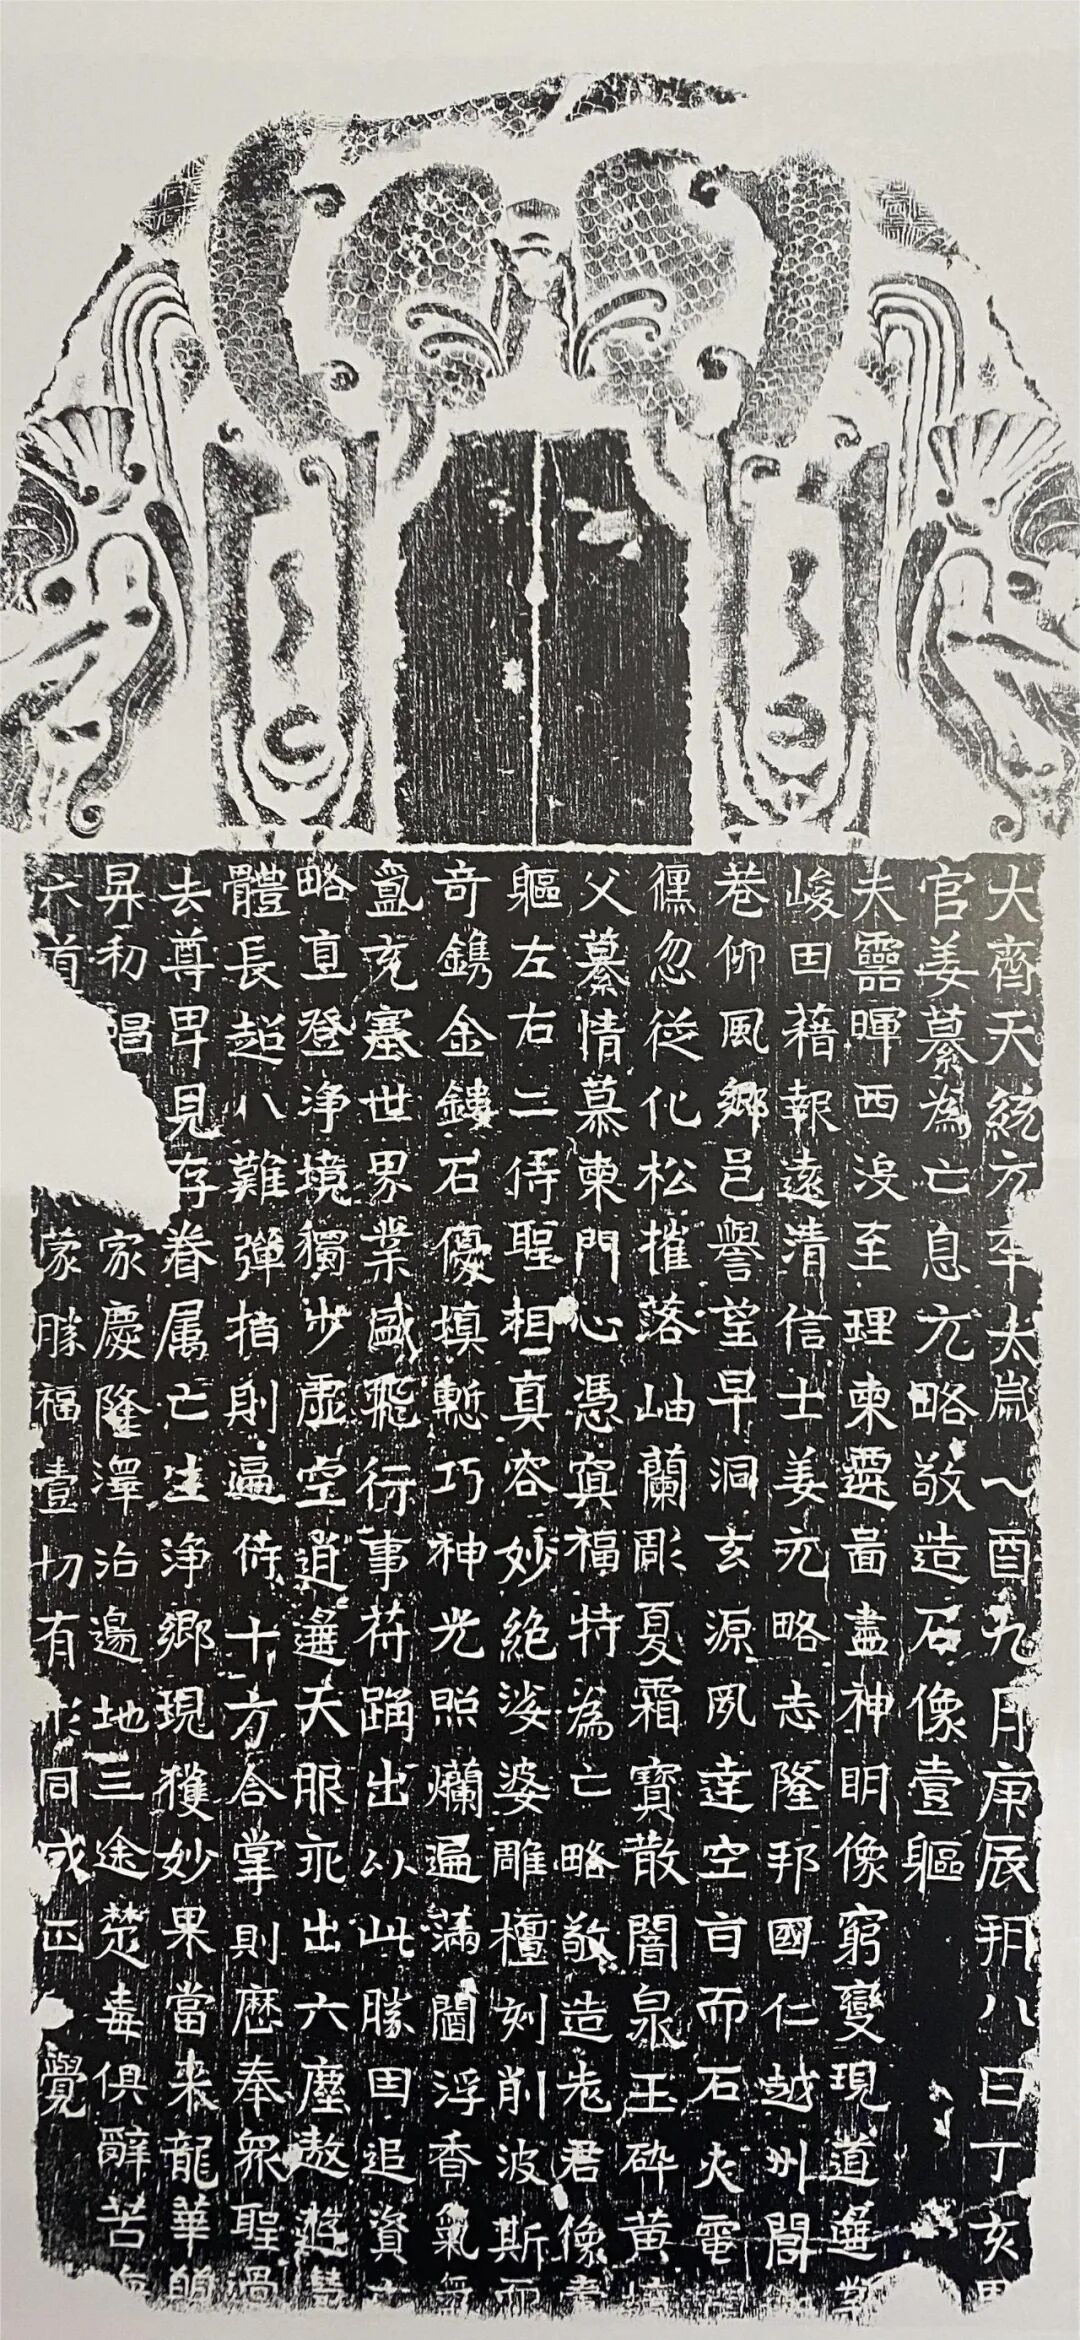 大齊天統元年太歲乙酉九月庚辰朔八日丁亥
官姜纂為亡息元略敬造石像壹軀
夫靈暉西没至理東遷啚盡神明像窮變現道蓮
峻田藉報遠清信士姜元略志隆邦國仁越州閭
巷仰風鄉邑譽望早洞玄源夙達空旨而石火電
倏忽從化松摧落岫蘭彫夏霜寶散闇泉玉碎黄
父纂情慕東門心憑冥福特為亡略敬造老君像壹
軀左右二侍聖相真容妙絶娑婆雕檀刻削波斯
奇鐫金鏤石優填慙巧神光照爛遍滿閻浮香氣
盫充塞世界業盛飛行事符踊出以此勝因追資
略直登浄境獨步虛空逍遥天服亦出六塵遨遊
體長超八難彈指則遍侍十方合掌則歷奉衆聖過
去尊卑見存眷属亡生浄鄉現獲妙果當来龍華
昇初唱 家慶隆澤洽邊地三途楚毒俱辭苦
六道 蒙勝福壹切有形同成正覺